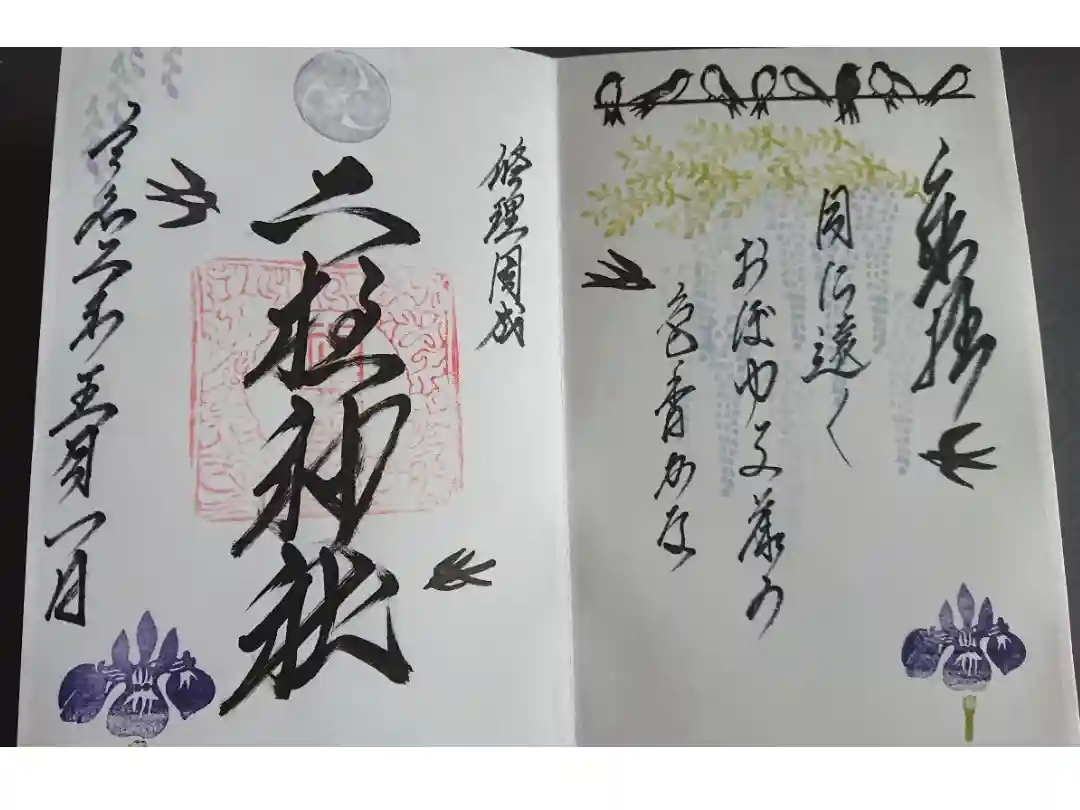 奉拝
月に遠く
おぼゆる藤の
色香かな
修理固成
二柱神社
令和二年五月一日